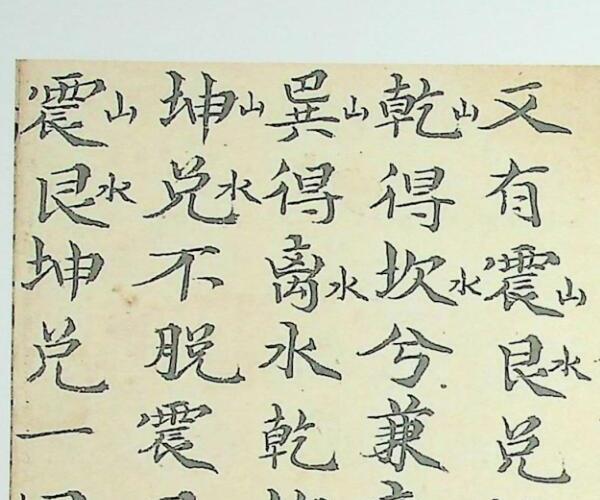 又有震山艮水兌
乾山得坎水兮兼
巽山得離水水乾
坤山兌水不脫震
震山艮水坤兌一